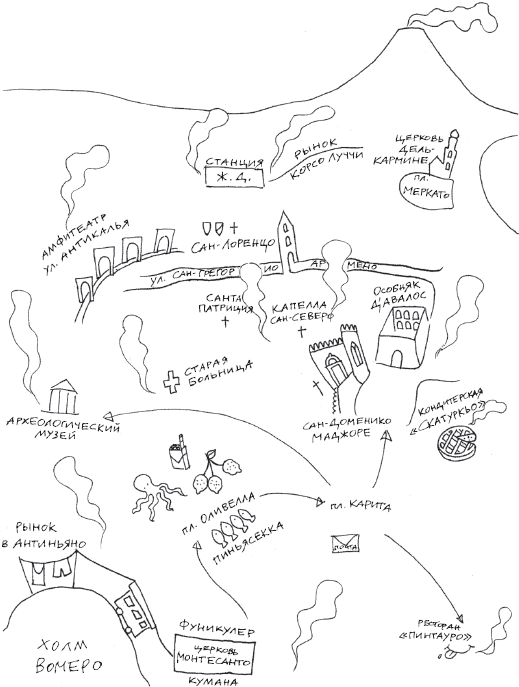 СТАНЦИЯ
Ж. Д.
РЫНОК
КОРСО ЛУЧЧИ
ЦЕРКОВЬ
ДЕЛЬ-
КАРМИНЕ
ПЛ.
МЕРКАТО
АМФИТЕАТР
УЛ. АНТИКАЛЬЯ
САН-ЛОРЕНЦО
УЛ. САН-ГРЕГОРИО АРМЕНО
САНТА
ПАТРИЦИЯ
КАПЕЛЛА
САН-СЕВЕРО
ОСОБНЯК
Д'АВАЛОС
СТАРАЯ
БОЛЬНИЦА
АРХЕОЛОГИЧЕСКИЙ
МУЗЕЙ
САН-ДОМЕНИКО
МАДЖОРЕ
КОНДИТЕРСКАЯ
«СКАТУРКЬО»
ПЛ. ОЛИВЕЛЛА
ПИНЬЯСЕККА
ПЛ. КАРИТА
ПОЧТА
РЫНОК
В АНТИНЬЯНО
ХОЛМ
ВОМЕРО
ФУНИКУЛЕР
ЦЕРКОВЬ
МОНТЕСАНТО
КУМАНА
РЕСТОРАН
«ПИНТАУРО»